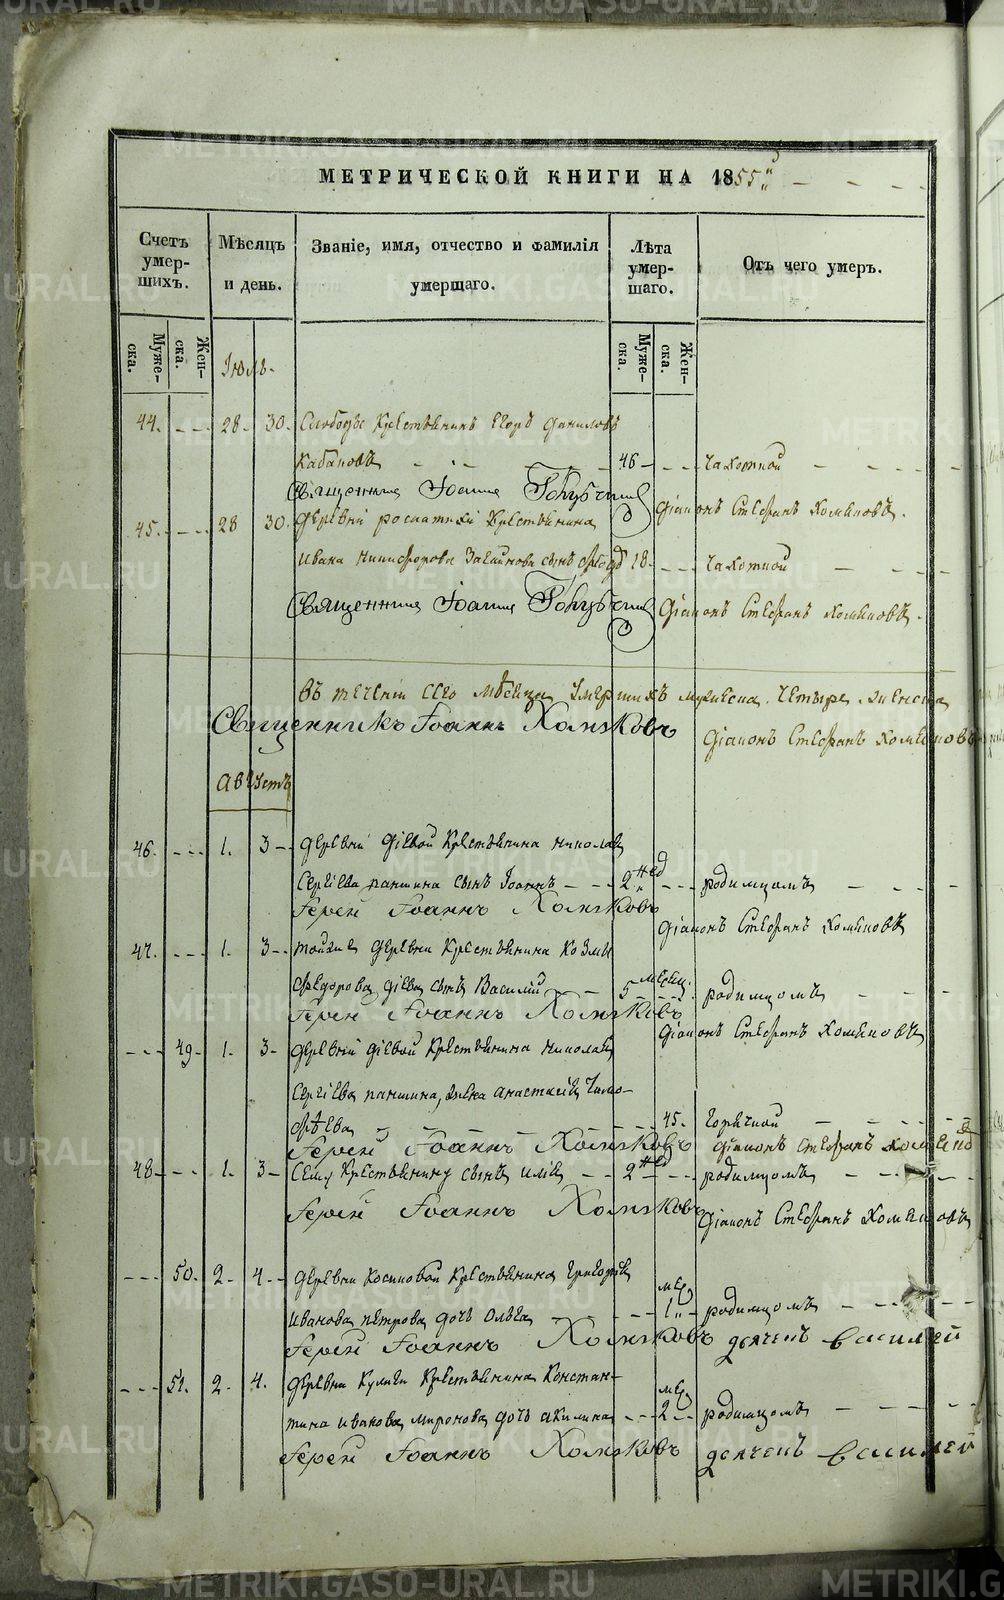 МЕТРИЧЕСКОЙ КНИГИ НА 1855
Счетъ умер-шихъ.
Мѣсяцъ и день.
Званіе, имя, отчество и фамилія умершаго.
Лѣта умер-шаго.
Отъ чего умеръ.
Муже-ска.
Жен-ска.
Муже-ска.
Жен-ска.
Іюль.
44. 28. 30. Слободы Крестьянинъ Егоръ Даниловъ
Кабановъ 46 чахоткой
Священникъ Іоаннъ
Діаконъ Стефанъ Хомяковъ.
45. 28 30. Деревни Крестьянина
Ивана Никифорова сынъ 18. чахоткой
Священникъ Іоаннъ
Діаконъ Стефанъ Хомяковъ.
Въ теченіи сего мѣсяца умершихъ мужеска четыре женска
Священникъ Іоаннъ Хомяковъ
Діаконъ Стефанъ Хомяковъ
Августъ
46. 1. 3 Деревни Діевой Крестьянина Николая
Сергіева паншина сынъ Іоаннъ 2 нед родимцомъ
Іерей Іоаннъ Хомяковъ
Діаконъ Стефанъ Хомяковъ
47. 1. 3 тойже деревни Крестьянина Козмы
Федорова Діева сынъ Василій 5 месяц. родимцомъ
Іерей Іоаннъ Хомяковъ
Діаконъ Стефанъ Хомяковъ
49 1. 3 деревни Діевой Крестьянина Николая
Сергіева паншина, жена анастасія Тимо-
фѣева 45. горячкой
Іерей Іоаннъ Хомяковъ Діаконъ Стефанъ Хомяковъ
48 1. 3 Сему Крестьянину сынъ илія 2 нед родимцомъ
Іерей Іоаннъ Хомяковъ
Діаконъ Стефанъ Хомяковъ
50. 2. 4. деревни Косиковой Крестьянина Григорія
Иванова петрова дочь Ольга мес 1 родимцомъ
Іерей Іоаннъ Хомяковъ дьячекъ Василей
51. 2. 4. деревни Крестьянина Констан-
тина иванова миронова дочь акилина мес 2 родимцомъ
Іерей Іоаннъ Хомяковъ дьячекъ Василей
METRIKI.GASO-URAL.RU